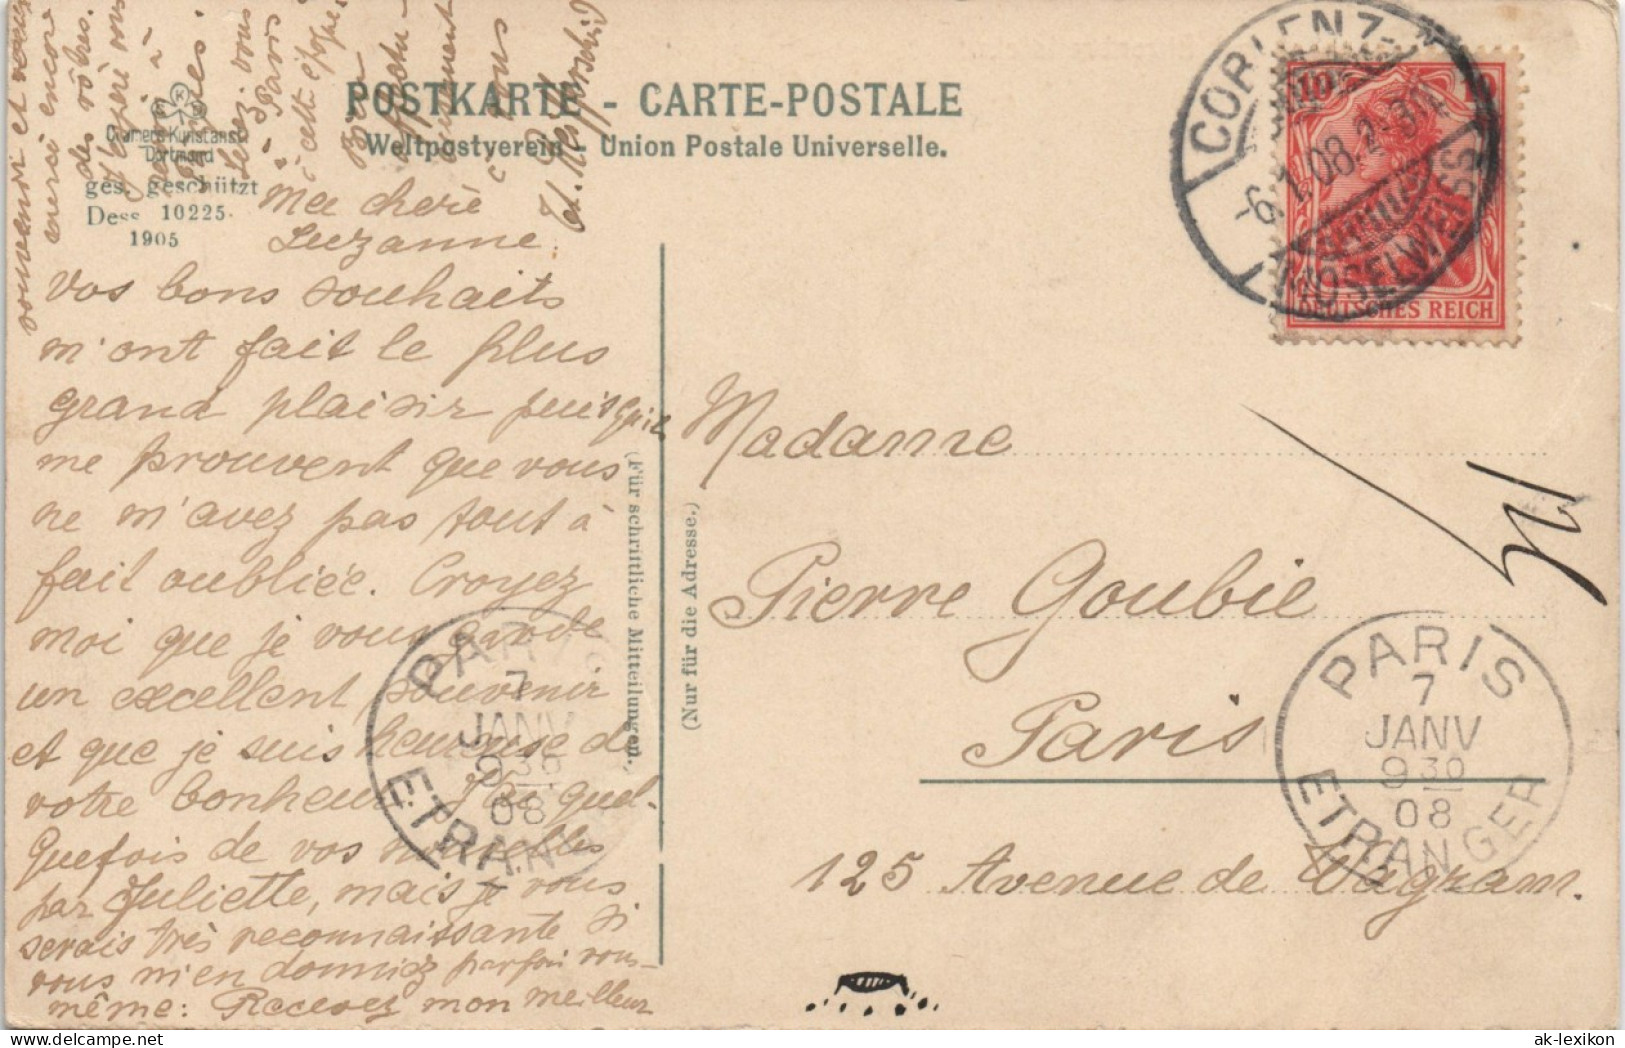 POSTKARTE - CARTE-POSTALE
Weltpostverein - Union Postale Universelle.
Cramers Kunstanst.
Dortmund
ges. geschützt
Dess 10225.
1905
Ma cheré
Suzanne.
Vos bons souhaits
m'ont fait le plus
grand plaisir puisqu'il
me prouvent que vous
ne m'avez pas tout à
fait oubliée. Croyez
moi que je vous garde
un excellent souvenir
et que je suis heureuse de
votre bonheur. J'ai quel-
quefois de vos nouvelles
par Juliette, mais je vous
serais très reconnaissante si
vous m'en donniez parfois vous-
même: Recevez mon meilleur
souvenir et
merci encore
des vôtres.
Paris
à cette époque
Bien
à vous
(Für schriftliche Mitteilungen.)
(Nur für die Adresse.)
Madame
Pierre Goubie
Paris
125 Avenue de Wagram.
COBLENZ-
-6.1.08.2-3N.
MOSELWEISS
10 10
DEUTSCHES REICH
PARIS
7
JANV
9 30
08
ETRANGER
PARIS
7
JANV
9 30
08
ETRANGER
ak-lexikon